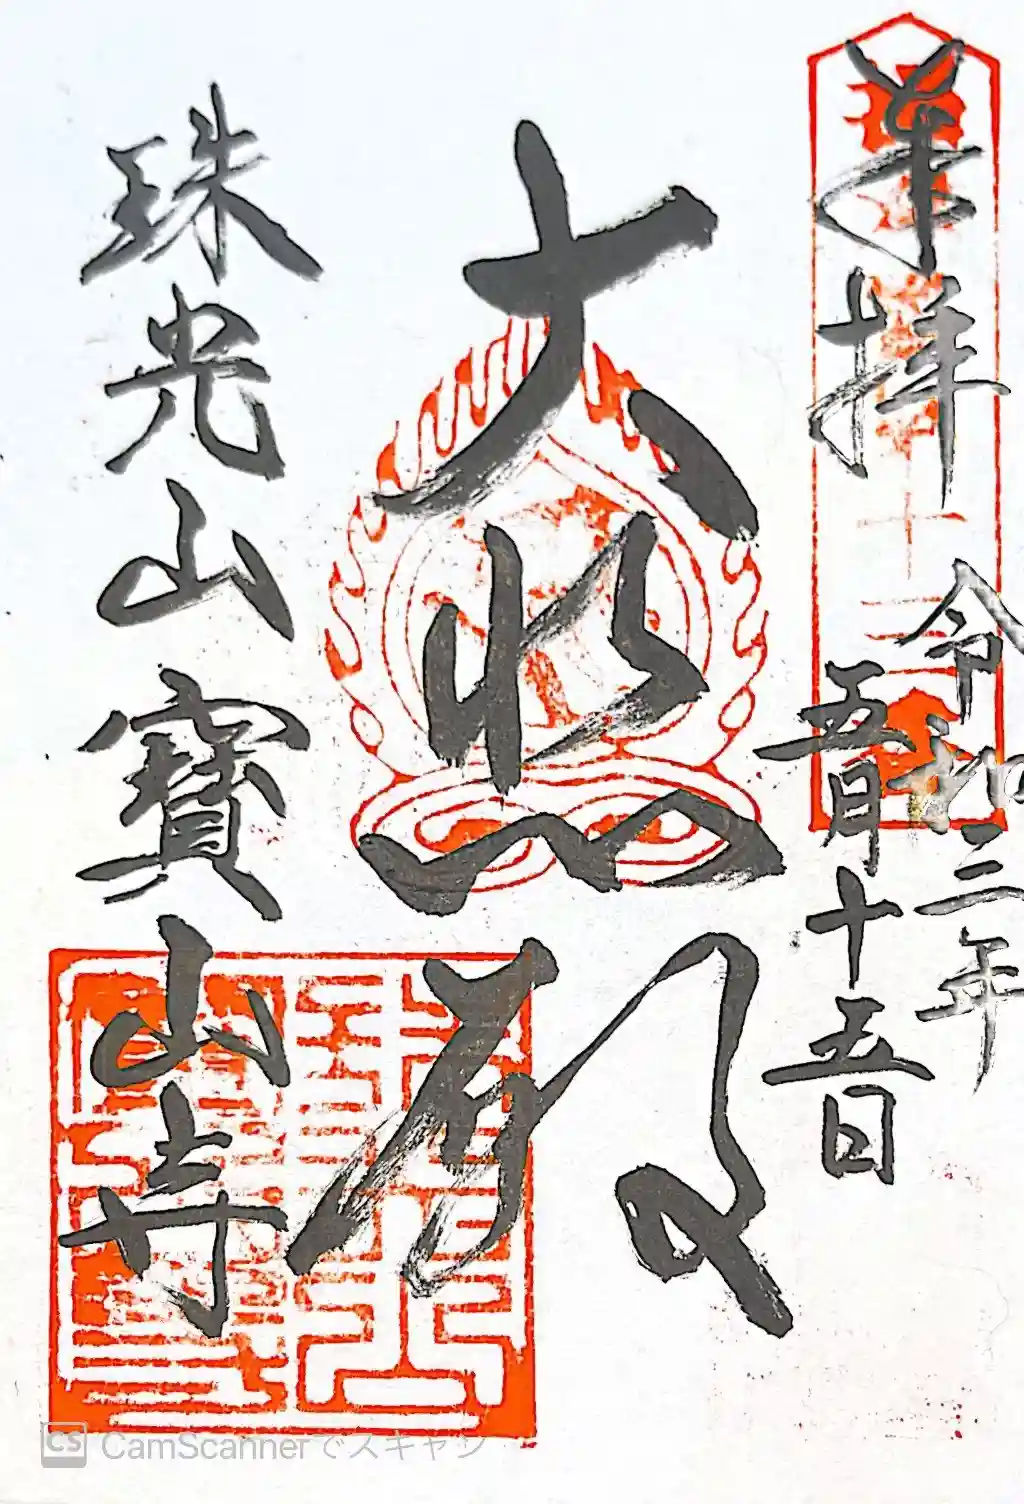 奉拝
令和三年
五月十五日
大悲殿
珠光山寶山寺
CS CamScannerでスキャン